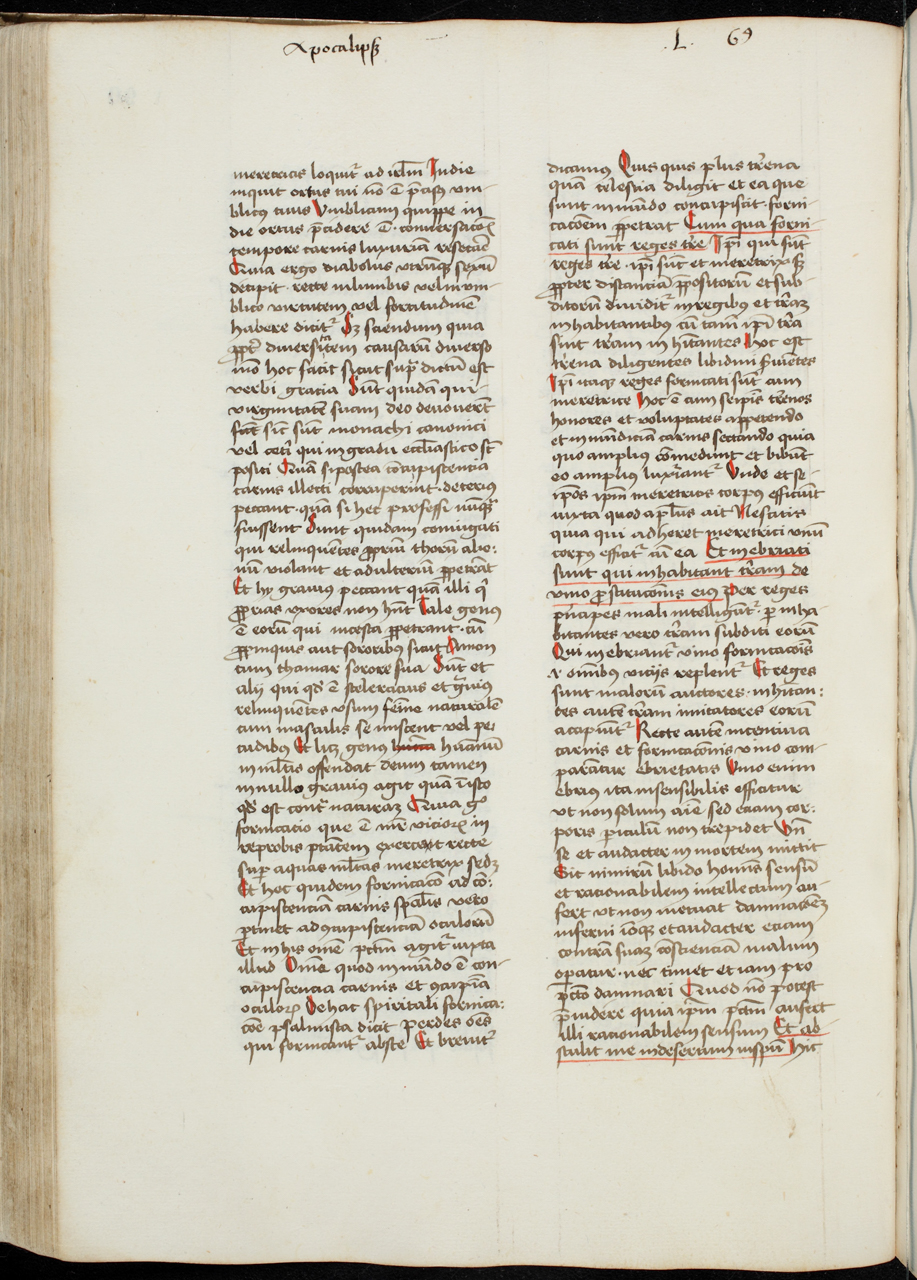 Apocalipsis
L 69
meretricis loquit᷑ ad irl̄m In die
inquit ortus tui nō ē p̄cisus vm-
blicus tuus Vmblicum quippe in
die ortus p̄cidere ē · conuersacōis
tempore carnis luxuriam resecare
Quia ergo diabolus vtrūq sexū
decipit · recte in lumbis vel in vm-
blico virtutem vel fortitudinē
habere dicit᷑ Sꝫ sciendum quia
ꝓpt᷑ diuersitatem causarū diuerso
mō hoc facit sicut sup᷑ dictū est
verbi gracia Sūt quidā qui
virginitatē suam deo deuouerūt
sicut sūt monachi canonici
vel cet᷑i qui in gradu eccl̄iastico sūt
positi Quā si postea cōcupiscencia
carnis illecti corruperint · deterius
peccant · quā si hec professi nūqᷓ
fuissent Sunt quidam coniugati
qui relinquētes ꝓpriū thorū alie-
nū violant et adulteriū ꝑpetrāt
Et hy grauius peccant quā illi q̄
ꝓprias vxores non hn̄t Tale genus
ē eorū qui incesta ꝑpetrant · cū
ꝓpinquis aut sororibus sicut Amon
cum thamar sorore sua Sūt et
alij qui qd̄ ē sceleracius et g̃uius
relinquētes vsum femīe naturalē
cum masculis se miscent vel pe-
cudibus Et licꝫ genus humanū
in ml̄tis offendat deum tamen
in nullo grauius agit quā ī isto
qd̄ est cont᷑ naturaꝫ Quia gͦ
fornicatio que ē mr̄ vicioꝝ in
reprobis ptātem exercet recte
sup̄ aquas ml̄tas meretrix sedꝫ
Et hoc quidem fornicacō ad cō-
cupiscenciā carnis sp̄alis vero
ꝑtinet ad ꝯcupiscenciā oculorū
Et in his omē pctm̄ agit᷑ iuxta
illud Omē quod in mūdo ē con-
cupiscencia carnis et ꝯcupīa
oculoꝝ De hac spiritali fornica-
cōe psalmista dicit perdes oēs
qui fornicant᷑ abs te Et breuit᷑
dicamus Quisquis plus t᷑rena
quā celestia diligit et ea que
sunt in mūdo concupiscit · forni-
cacōem ꝑpetrat Cum qua forni-
cati sunt reges t᷑re Ip̄i qui sūt
reges t᷑re · ip̄i sūt et meretrix sꝫ
ꝓpter distanciā p̄positorū et sub-
ditorū diuidit᷑ in regibus et t᷑raꝫ
inhabitantibus cū tam̄ ip̄i t᷑ra
sint t᷑ram inhitantes Hoc est
t᷑rena diligentes libidini s̄uientes
Ip̄i itaqꝫ reges fornicati sūt cum
meretrice Hoc ē cum seip̄is t᷑renos
honores et voluptates appetendo
et in mūdiciā carnis sectando quia
quo amplius comedunt et bibūt
eo amplius luxiant᷑ Vnde et se-
ip̄os ip̄m meretricis corpus efficiūt
iuxta quod ap̄lus ait Nescitis
quia qui adheret meretrici vnū
corpus efficit᷑ cū ea Et inebriati
sunt qui inhabitant t᷑ram de
vino ꝓstitucionis eius Per reges
p̄ncipes mali intelligūt᷑ · ꝑ inha-
bitantes vero t᷑ram subditi eorū
Qui inebriant᷑ vino fornicacōis
⁊ omībus vicijs replent᷑ Et reges
sunt malorū auctores · inhitan-
tes autē t᷑ram imitatores eorū
accipiūt᷑ Recte autē incentiua
carnis et fornicacōnis vino com-
parātur ebrietatis Vino enim
ebrius ita insensibilis efficitur
vt non solum aīe sed eciam cor-
poris ꝑiculū non trepidet Vn̄
se et audacter in mortem mittit
Sic nimirū libido hominis sensū
et racionabilem intellectum au-
fert vt non metuat dampnacōeꝫ
inferni ioꝙ et audacter eciam
contra suaꝫ cōscienciā malum
operatur · nec timet et iam pro
pccto damnari Quod nō potest
p̄uidere quia ip̄m pctm̄ aufert
illi racionabilem sensum Et ab-
stulit me in desertum in spū Hic